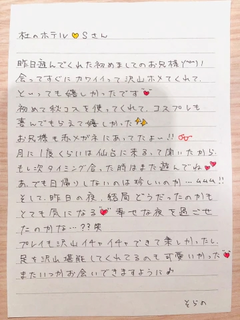 杜のホテル💛Sさん
昨日遊んでくれた初めましてのお兄様!
会ってすぐにカワイイって沢山ホメてくれて、
とーっても嬉しかったです💕
初めて秋コスを使ってくれて、コスプレも
喜んでもらえて嬉しかった
お兄様も赤メガネにあってたよー!!
月に1度くらいは仙台に来るって聞いたから
もし次タイミング合った時はまた遊んでね
あでも日帰りしないのは珍しいのか…
そして昨日の夜、結局どうだったのかも
とても気になる💕幸せな夜を過ごせ
たのかな…??笑
プレイも沢山イチャイチャできて楽しかったし、
足を沢山堪能してくれてるのも可愛いかった💕
またいつかお会いできますように♪
そらの